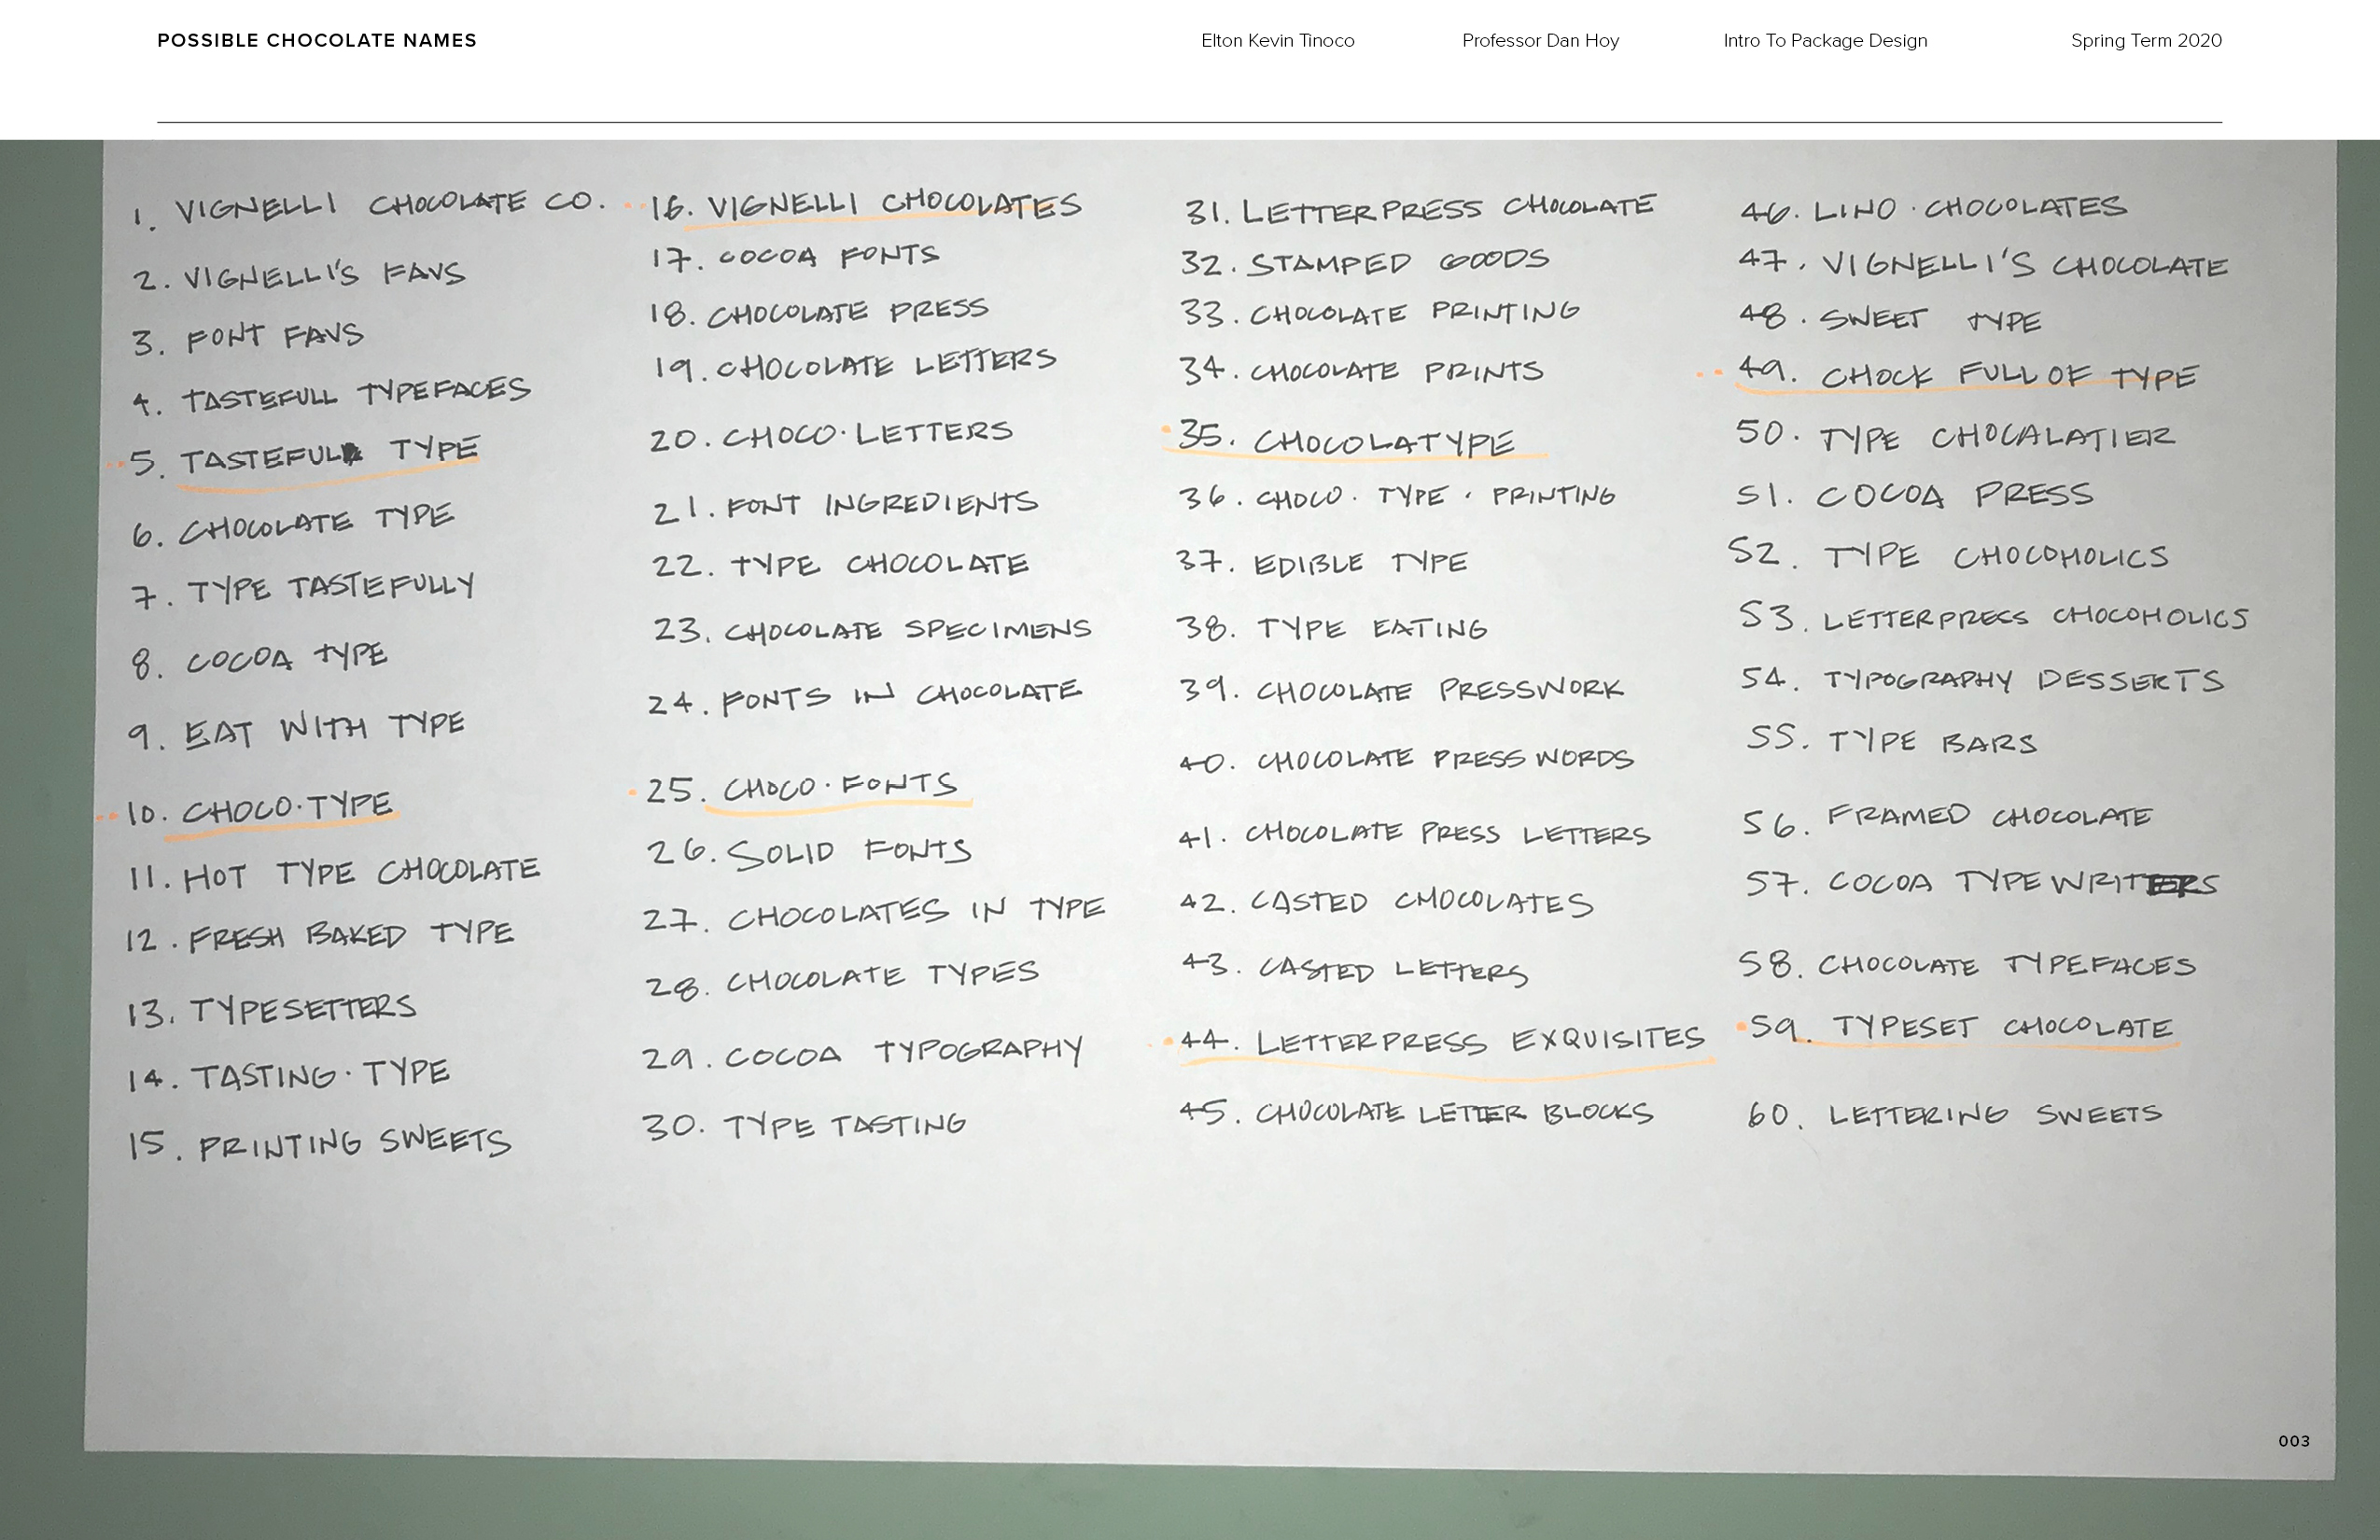 POSSIBLE CHOCOLATE NAMES
Elton Kevin Tinoco
Professor Dan Hoy
Intro To Package Design
Spring Term 2020
1. VIGNELLI CHOCOLATE CO.
2. VIGNELLI'S FAVS
3. FONT FAVS
4. TASTEFULL TYPEFACES
5. TASTEFUL TYPE
6. CHOCOLATE TYPE
7. TYPE TASTEFULLY
8. COCOA TYPE
9. EAT WITH TYPE
10. CHOCO·TYPE
11. HOT TYPE CHOCOLATE
12. FRESH BAKED TYPE
13. TYPESETTERS
14. TASTING·TYPE
15. PRINTING SWEETS
16. VIGNELLI CHOCOLATES
17. COCOA FONTS
18. CHOCOLATE PRESS
19. CHOCOLATE LETTERS
20. CHOCO·LETTERS
21. FONT INGREDIENTS
22. TYPE CHOCOLATE
23. CHOCOLATE SPECIMENS
24. FONTS IN CHOCOLATE
25. CHOCO·FONTS
26. SOLID FONTS
27. CHOCOLATES IN TYPE
28. CHOCOLATE TYPES
29. COCOA TYPOGRAPHY
30. TYPE TASTING
31. LETTERPRESS CHOCOLATE
32. STAMPED GOODS
33. CHOCOLATE PRINTING
34. CHOCOLATE PRINTS
35. CHOCOLATYPE
36. CHOCO · TYPE · PRINTING
37. EDIBLE TYPE
38. TYPE EATING
39. CHOCOLATE PRESSWORK
40. CHOCOLATE PRESS WORDS
41. CHOCOLATE PRESS LETTERS
42. CASTED CHOCOLATES
43. CASTED LETTERS
44. LETTERPRESS EXQUISITES
45. CHOCOLATE LETTER BLOCKS
46. LINO · CHOCOLATES
47. VIGNELLI'S CHOCOLATE
48. SWEET TYPE
49. CHOCK FULL OF TYPE
50. TYPE CHOCALATIER
51. COCOA PRESS
52. TYPE CHOCOHOLICS
53. LETTERPRESS CHOCOHOLICS
54. TYPOGRAPHY DESSERTS
55. TYPE BARS
56. FRAMED CHOCOLATE
57. COCOA TYPEWRITERS
58. CHOCOLATE TYPEFACES
59. TYPESET CHOCOLATE
60. LETTERING SWEETS
003